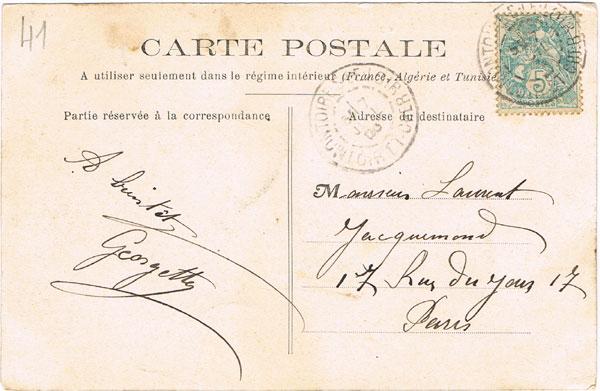 41
CARTE POSTALE
A utiliser seulement dans le régime intérieur (France, Algérie et Tunisie
Partie réservée à la correspondance
Adresse du destinataire
A bientôt
Georgette
Monsieur Laurent
Jacquemond
17 Rue du Jour 17
Paris
5